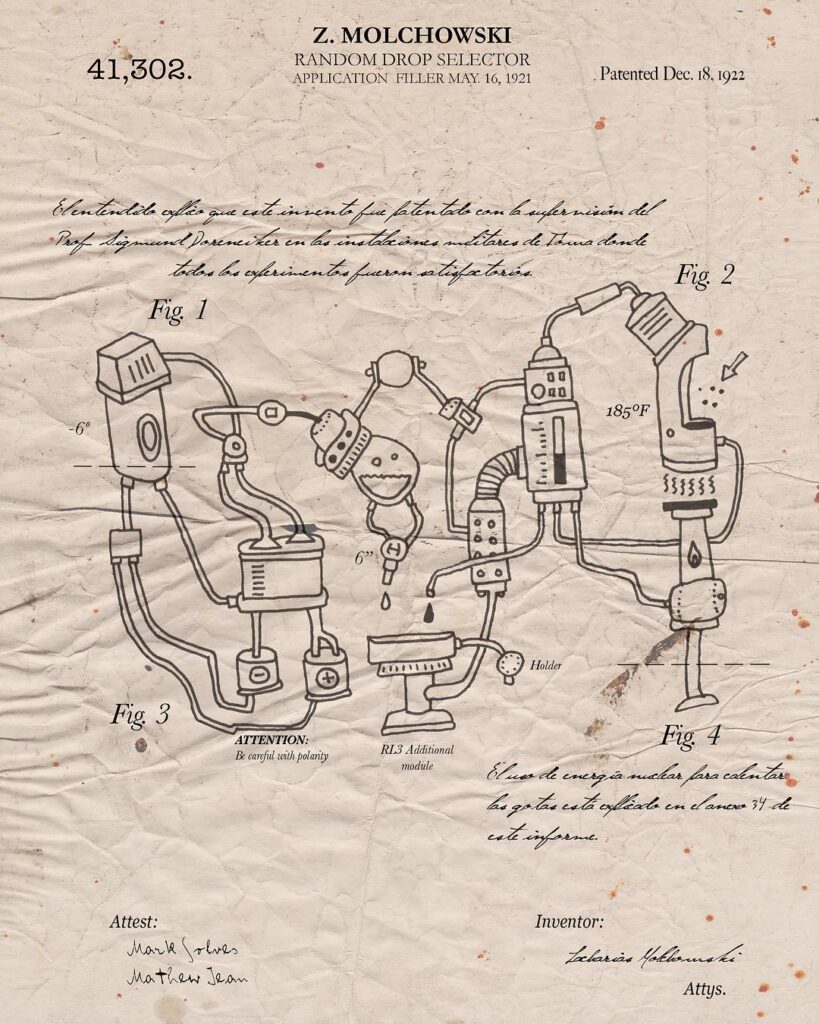 Z. MOLCHOWSKI
41,302.
RANDOM DROP SELECTOR
APPLICATION FILLER MAY. 16, 1921
Patented Dec. 18, 1922
El entendido explico que este invento fue patentado con la supervisión del
Prof. Sigmund en las instalciones militares de donde
todos los experimentos fueron satisfactorios.
Fig. 1
Fig. 2
-6º
185ºF
6”
Holder
Fig. 3
ATTENTION:
Be careful with polarity
RL3 Additional
module
Fig. 4
El uso de energia nuclear para calentar
las gotas está explicado en el anexo 34 de
este informe.
Attest:
Mark Solves
Mathew Jean
Inventor:
Zacharias Molchowski
Attys.